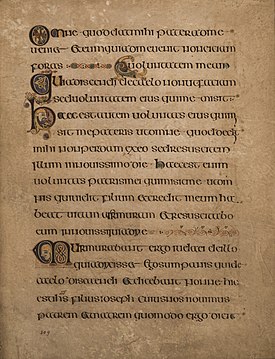 Omne quod dat mihi pater ad me
ueniet & eum qui uenit ad me non eieciam
foras uoluntatem meam
Quia discendi de caelo non ut faciam
sed uoluntatem eius qui me misit
Haec est autem uoluntas eius qui
misit me patris ut omne quod dedit
mihi non perdam ex eo sed resuscitem
illum in nouissimo die Haec est enim
uoluntas patris mei qui misit me ut om
nis qui uidit filium & credit in eum ha
beat uitam aeternam & resuscitabo
eum in nouissimo die
Murmurabant ergo iudei de illo
quia dixisset Ego sum panis qui de
caelo discendi & dicebant Nonne hic
est filius ioseph cuius nos nouimus
patrem & matrem quomodo ergo dicit